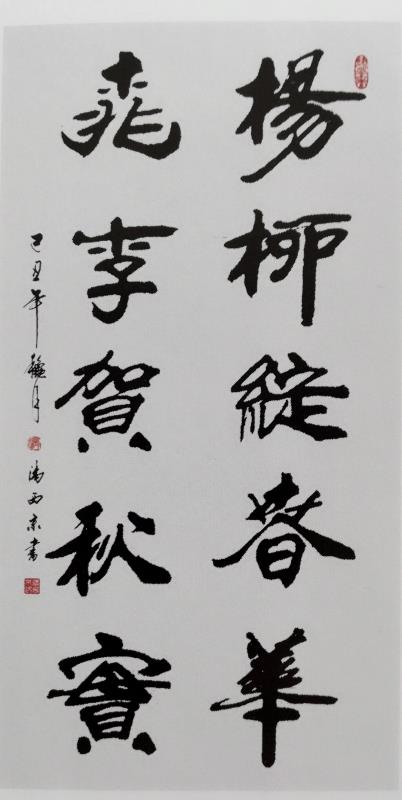 楊柳綻春華
桃李賀秋實
己丑年 月
西京書